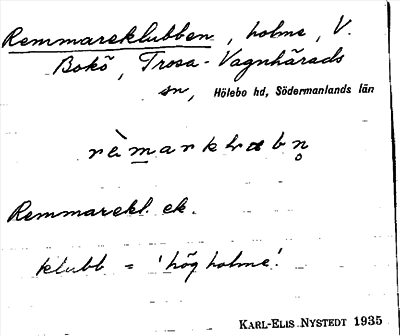 Remmareklubben, holme, V.
Bokö, Trosa-Vagnhärads
sn, Hölebo hd, Södermanlands län
Remmarekl. ek.
klubb = 'hög holme'.
KARL-ELIS NYSTEDT 1935